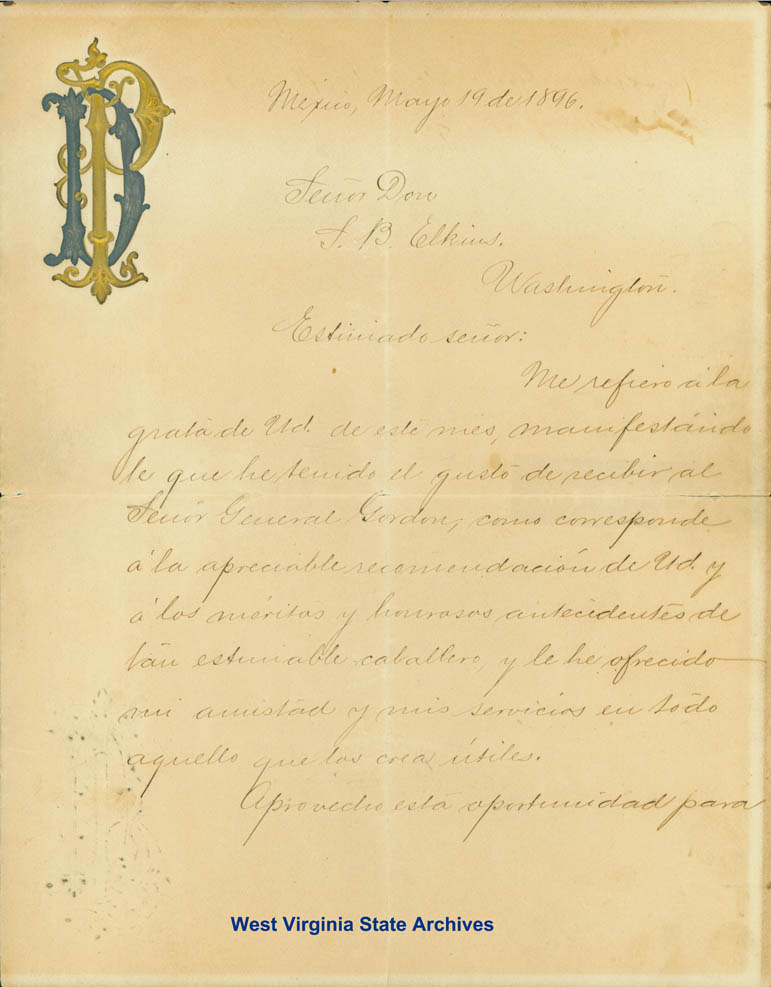 PD
México, Mayo 19 de 1896.
Señor Don
S. B. Elkins.
Washington.
Estimado señor:
Me refiero á la
grata de Ud. de este mes, manifestándo
le que he tenido el gusto de recibir al
Señor General Gordon, como corresponde
á la apreciable recomendación de Ud. y
á los méritos y honrosos antecidentes de
tan estimable caballero, y le he ofrecido
mi amistad y mis servicios en todo
aquello que los crea útiles.
Aprovecho esta oportunidad para
West Virginia State Archives